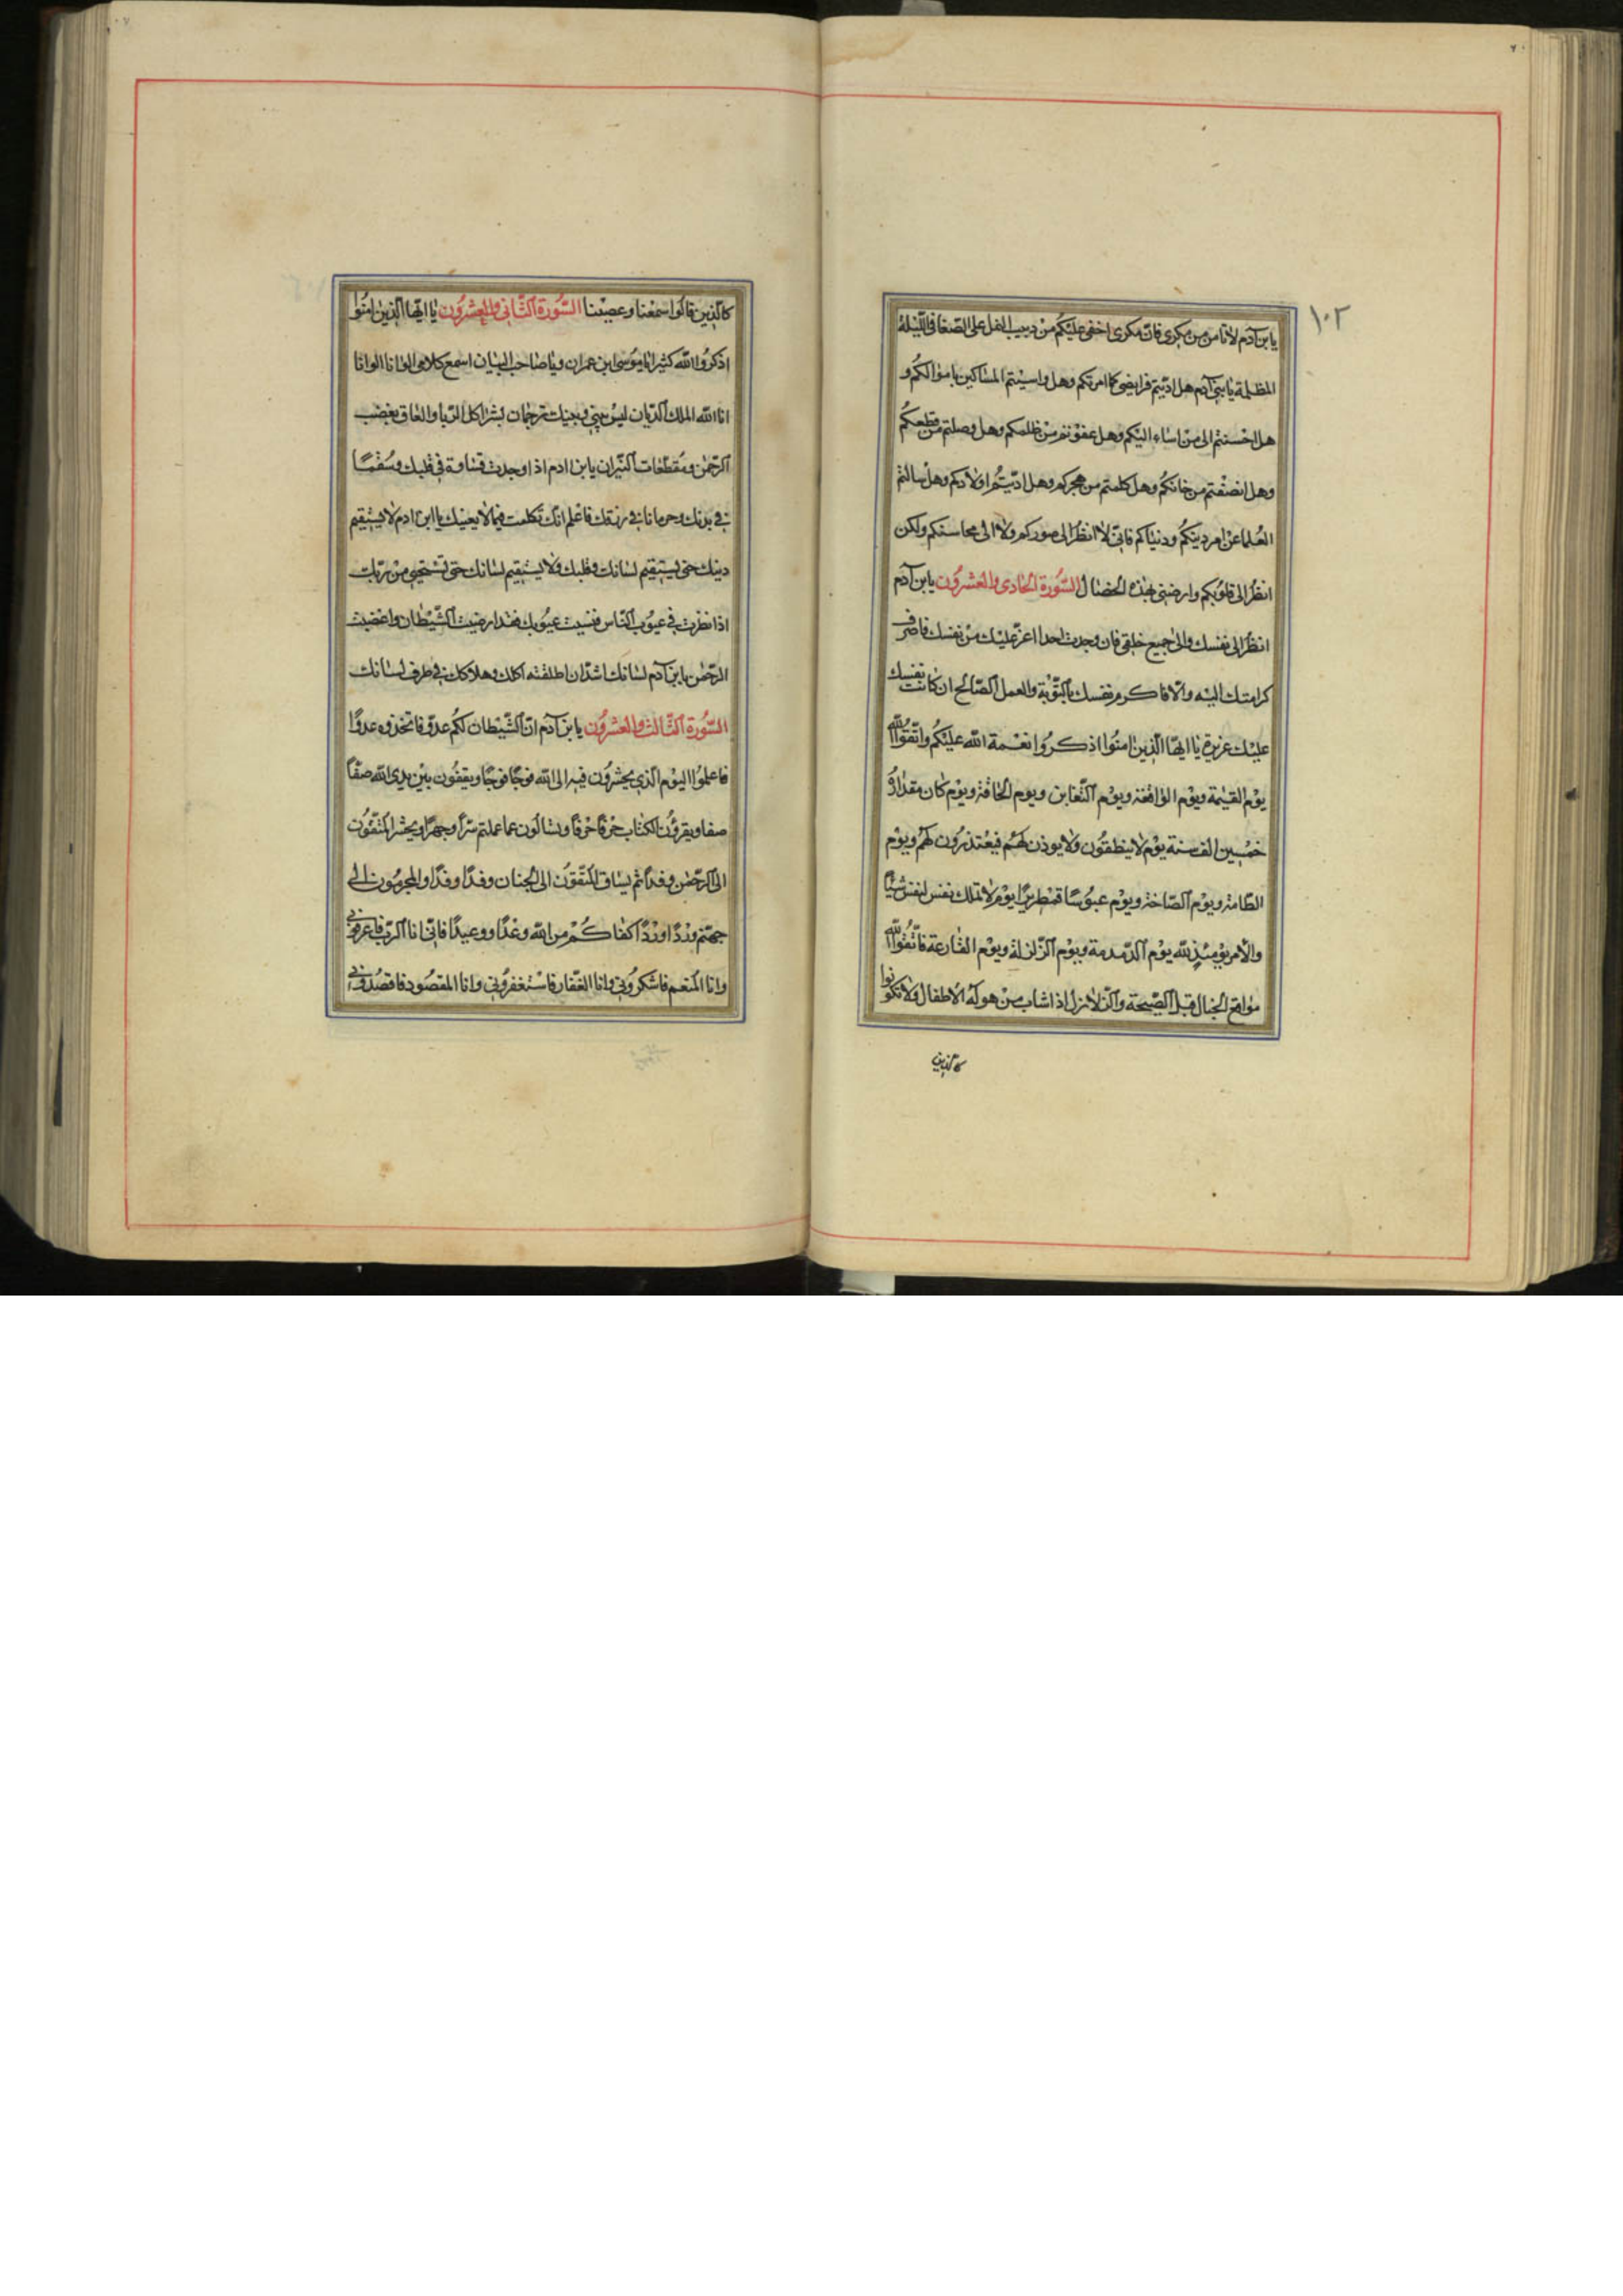 ١٠٢
يا بن آدم لا تأمن من مكرى فانّ مكرى اخفى عليكم من دبيب النمل على الصّفا فى اللّيلة
المظلمة يا بنى آدم هل ادّيتم فرايضى كما امرتكم وهل واسيتم المساكين باموالكم و
هل احسنتم الى من اساء اليكم وهل عفوتم من ظلمكم وهل وصلتم من قطعكم
وهل انصفتم من خانكم وهل كلمتم من هجركم وهل ادّبتم اولادكم وهل سالتم
العلماء عن امر دينكم ودنياكم فانّى لا انظر الى صوركم ولا الى محاسنكم ولكن
انظر الى قلوبكم وارضى بهذه الخصال السّورة الحادى والعشرون يا بن آدم
انظر الى نفسك والى جميع خلقى فان وجدت احدا اعزّ عليك من نفسك فاصرف
كرامتك اليه والّا فاكرم نفسك بالتّوبة والعمل الصّالح ان كانت نفسك
عليك عزيزة يا ايّها الّذين امنوا اذكروا نعمة الله عليكم واتّقوا الله
يوم القيمة ويوم الواقعة ويوم التّغابن ويوم الحاقّة ويوم كان مقداره
خمسين الف سنة يوم لا ينطقون ولا يوذن لهم فيعتذرون لهم ويوم
الطّامة ويوم الصّاخة ويوم عبوسا قمطريرا يوم لا تملك نفس لنفس شيئا
والامر يومئذ لله يوم الدّمدمة ويوم الزّلزلة ويوم القارعة فاتّقوا الله
مواقع الجبال قبل الصّيحة والزّلازل اذا شاب من هوله الاطفال ولا تكونوا
كالذين
كالّذين قالوا سمعنا وعصينا السّورة الثّانى والعشرون يا ايّها الّذين امنوا
اذكروا الله كثيرا يا موسى ابن عمران ويا صاحب البيان اسمع كلامى الوانا الوانا
انا الله الملك الدّيان ليس بينى وبينك ترجمان بشر اكل الرّبا والعاق بغضب
الرّحمن ومقطعات النّيران يا بن ادم اذا وجدت قساوة فى قلبك وسقما
فى بدنك وحرمانا فى رزقك فاعلم انّك تكلمت فيما لا يعنيك يا ابن ادم لا يستقيم
دينك حتى يستقيم لسانك وقلبك ولا يستقيم لسانك حتى تستحيى من ربّك
اذا نظرت فى عيوب النّاس فنسيت عيوبك فقد ارضيت الشّيطان واغضبت
الرّحمن يا بن آدم لسانك اسد ان اطلقته اكلك وهلاكك فى طرف لسانك
السّورة الثّالث والعشرون يا بن آدم انّ الشّيطان لكم عدوّ فاتخذوه عدوّا
فاعلموا اليوم الّذى يحشرون فيه الى الله فوجا فوجا ويقفون بين يدى الله صفّا
صفا ويقرؤن الكتاب حرفا حرفا ويسالون عما عملتم سرّا وجهرا ويحشر المتّقون
الى الرّحمن وفدا ثم يساق المتّقون الى الجنان وفدا وفدا والمجرمون الى
جهنّم وردا وردا كفاكم من الله وعدا ووعيدا فانّى انا الرّبّ فاعرفونى
وانا المنعم فاشكرونى وانا الغفّار فاستغفرونى وانا المقصود فاقصدونى